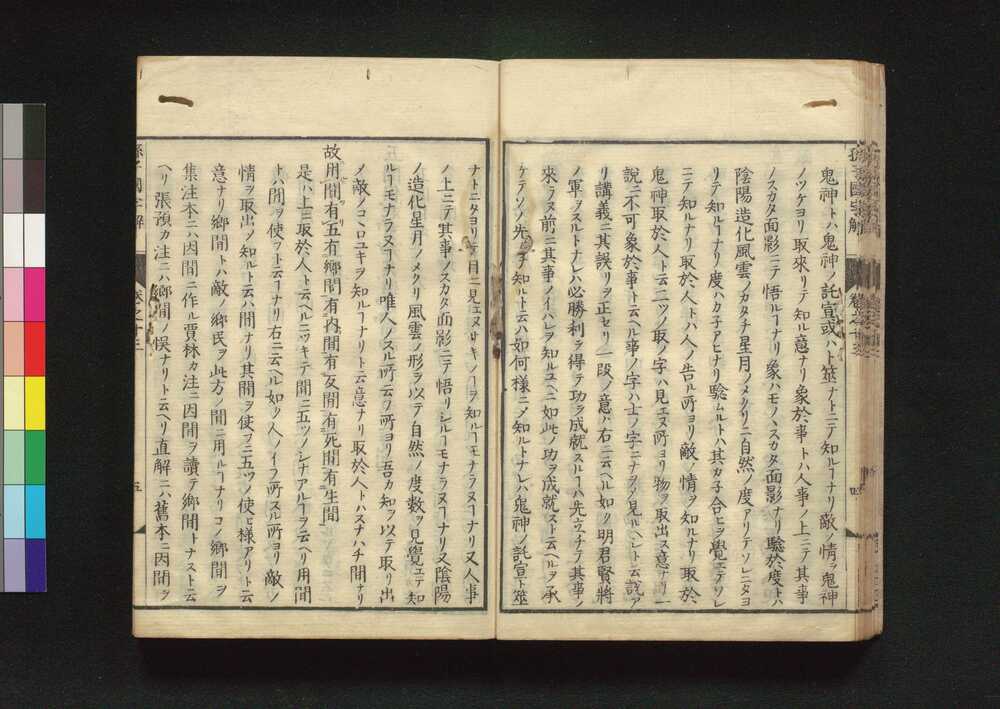 鬼神トハ鬼神ノ託宣或ハト筮ナトニテ知ルヿナリ敵ノ情ヲ鬼神
ノツケヨリ取來リテ知ル意ナリ象於事トハ人事ノ上ニテ其事
ノスカタ面影ニテ悟ルヿナリ象ハモノヽスカタ面影ナリ驗於度トハ
陰陽造化風雲ノカタチ星月ノメクリニ自然ノ度アリテソレニタヨ
リテ知ルヿナリ度ハカ子アヒナリ驗ムルトハ其カ子合ヒヲ覺エテソレ
ニテ知ルナリ取於人トハ人ノ告ル所ヨリ敵ノ情ヲ知ルナリ取於
鬼神取於人ト云二ツノ取ノ字ハ見エヌ所ヨリ物ヲ取出ス意ナリ一
説ニ不可象於事ト云ヘル事ノ字ハ士ノ字ニナヲシ見ルヘシト云説ア
リ講義ニ其誤リヲ正セリ一段ノ意ハ右ニ云ヘル如ク明君賢將
ノ軍ヲスルトナレハ必勝利ヲ得テ功ヲ成就スルヿハ先立チテ其事ノ
來ラヌ前ニ其事ノイハレヲ知ルユヘニ如此ノ功ヲ成就スト云ヘルヲ承
ケテソノ先立チ知ルト云ハ如何樣ニメ知ルトナレハ鬼神ノ託宣ト筮
ナトニタヨリテ目ニ見エヌサキノヿヲ知ルヿモナラヌヿナリ又人事
ノ上ニテ其事ノスカタ面影ニテ悟リシルヿモナラヌヿナリ又陰陽
ノ造化星月ノメクリ風雲ノ形ヲ以テ自然ノ度數ヲ見覺エテ知
ルヿモナラヌヿナリ唯人ノスル所云フ所ヨリ吾カ知ヲ以テ取リ出
ノ敵ノコヽロユキヲ知ルヿナリト云意ナリ取於人トハスナハチ間ナリ
故用間有五有鄉間有内間有反間有死間有生間
是ハ上ニ取於人ト云ヘルニツキテ間ニ五ツノシナアルヿヲ云ヘリ用間
トハ間ヲ使フト云ヿナリ右ニ云ヘル如ク人ノイフ所スル所ヨリ敵ノ
情ヲ取出ノ知ルト云ハ間ナリ其間ヲ使フニ五ツノ使ヒ樣アリト云
意ナリ鄉間トハ敵ノ鄉民ヲ此方ノ間ニ用ルヿナリコノ鄉間ヲ
集注本ニハ因間ニ作ル賈林カ注ニ因間ヲ讀テ鄉間トナストモ
ヘリ張預カ注ニハ鄉間ノ悞ナリト云ヘリ直解ニハ舊本ニ因間ヲ
五